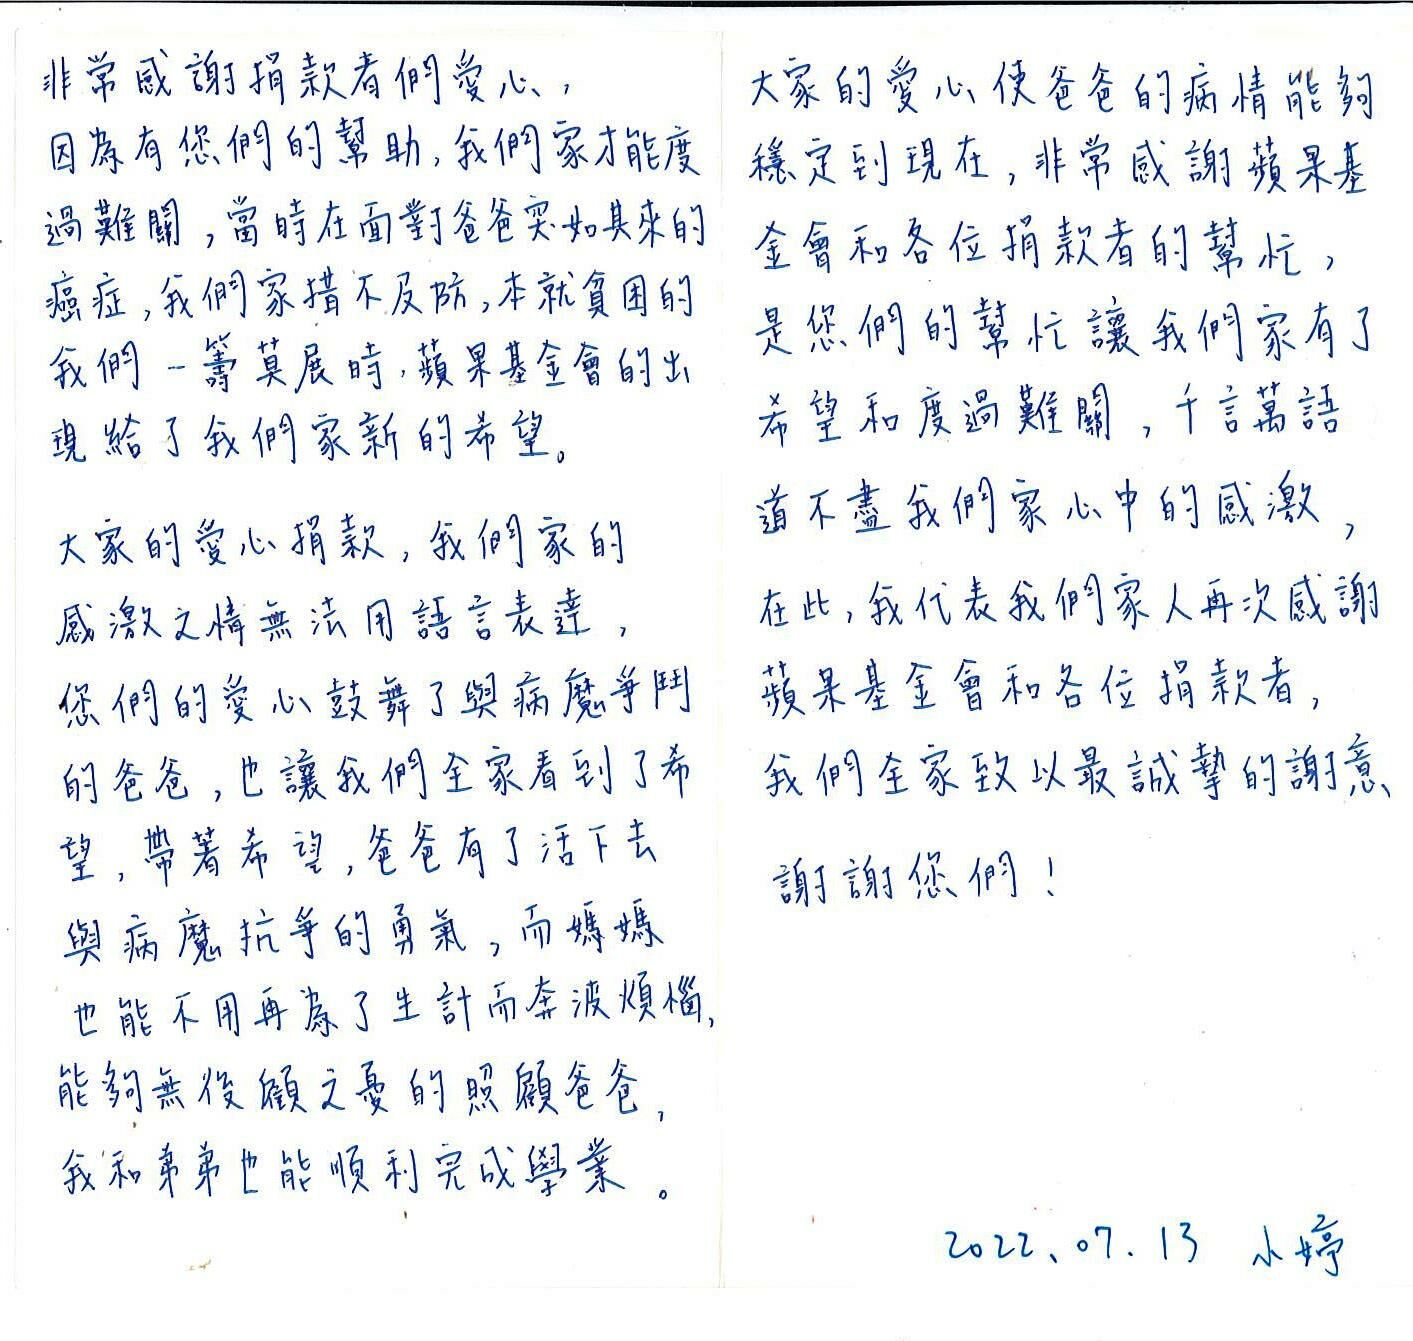 非常感謝捐款者們愛心，
因為有您們的幫助，我們家才能度
過難關，當時在面對爸爸突如其來的
癌症，我們家措不及防，本就貧困的
我們一籌莫展時，蘋果基金會的出
現給了我們家新的希望。
大家的愛心捐款，我們家的
感激之情無法用語言表達，
您們的愛心鼓舞了與病魔爭鬥
的爸爸，也讓我們全家看到了希
望，帶著希望，爸爸有了活下去
與病魔抗爭的勇氣，而媽媽
也能不用再為了生計而奔波煩惱，
能夠無後顧之憂的照顧爸爸，
我和弟弟也能順利完成學業。
大家的愛心使爸爸的病情能夠
穩定到現在，非常感謝蘋果基
金會和各位捐款者的幫忙，
是您們的幫忙讓我們家有了
希望和度過難關，千言萬語
道不盡我們家心中的感激，
在此，我代表我們家人再次感謝
蘋果基金會和各位捐款者，
我們全家致以最誠摯的謝意、
謝謝您們！
2022.07.13 小婷